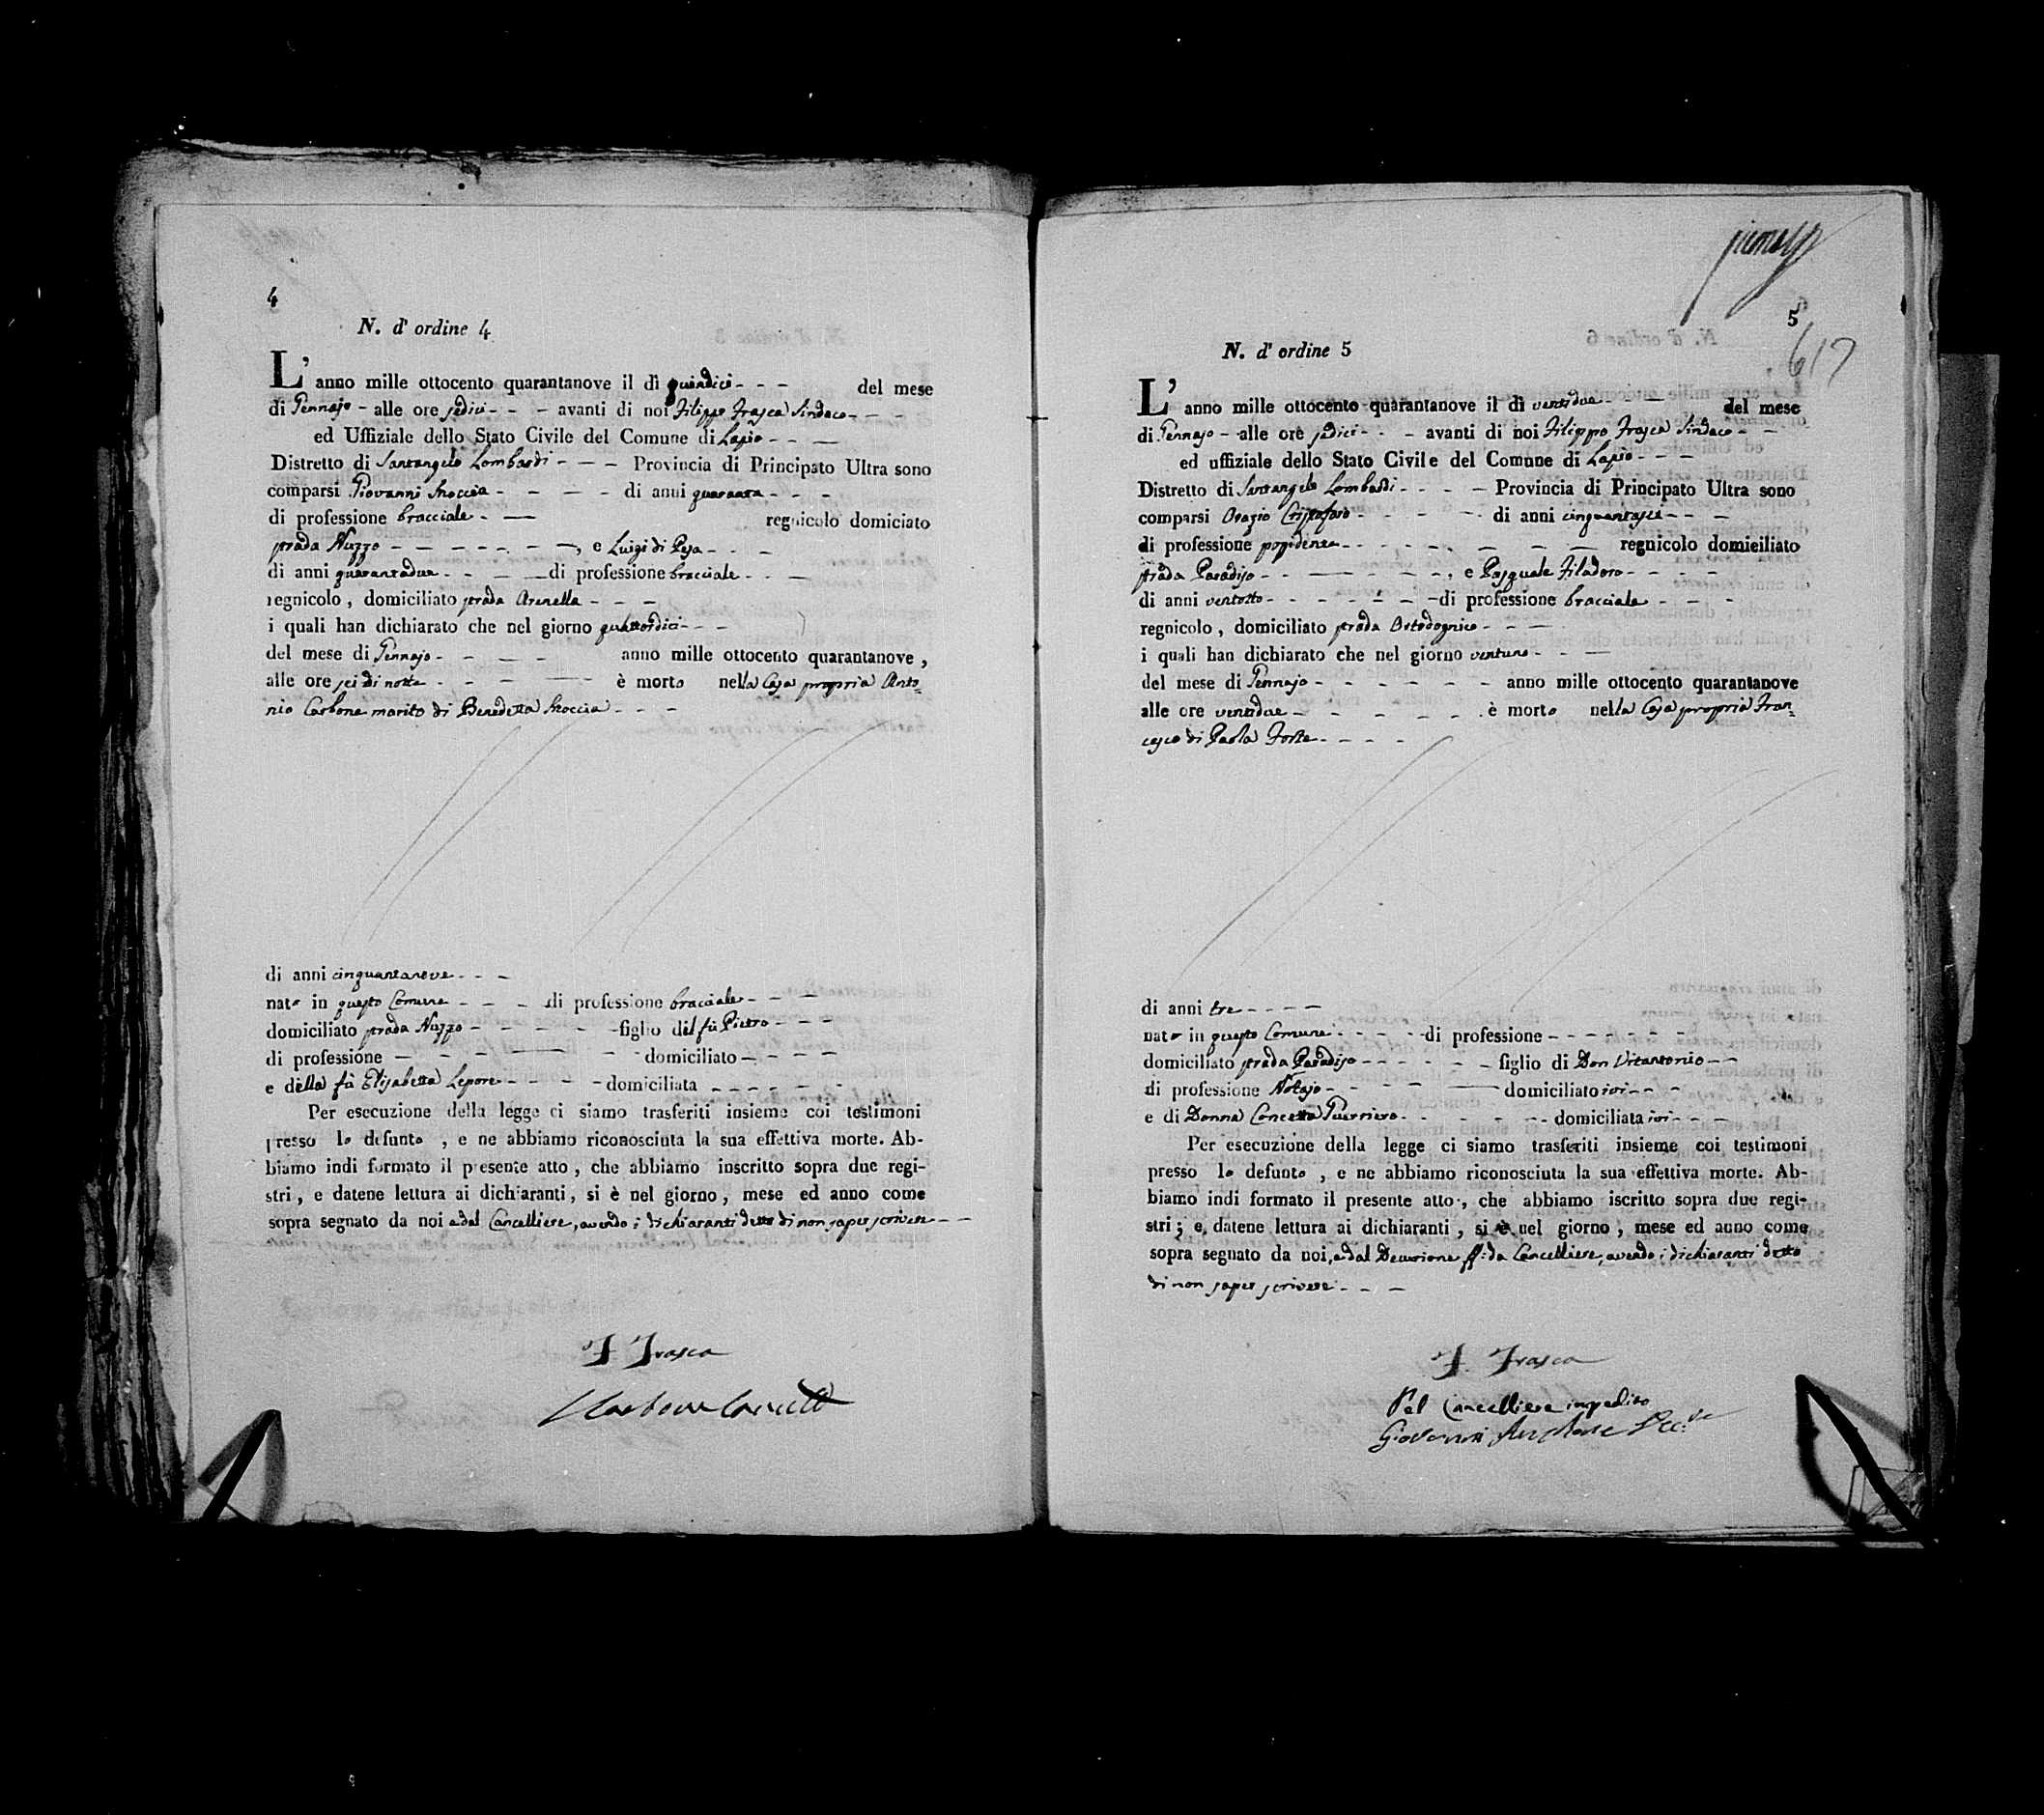 4
N. d' ordine 4
L' anno mille ottocento quarantanove il dì quindici - - - del mese
di Gennajo - alle ore sedici - - - avanti di noi Filippo Frasca Sindaco - - -
ed Uffiziale dello Stato Civile del Comune di Lapio - - -
Distretto di Santangelo Lombardi - - - Provincia di Principato Ultra sono
comparsi Giovanni Snoccia - - - - di anni quaranta - - -
di professione bracciale - — regnicolo domiciato
strada Nuzzo - - - - - - -, e Luigi di Pesa - - -
di anni quarantadue - - - - di professione bracciale - - -
regnicolo, domiciliato strada Arenella - - -
i quali han dichiarato che nel giorno quattordici - - -
del mese di Gennajo - - - - anno mille ottocento quarantanove,
alle ore sei di notte - - - - è morto nella Casa propria Anto=
nio Carbone marito di Benedetta Snoccia - - -
di anni cinquantanove - - -
nato in questo Comune - - - - di professione bracciale - - -
domiciliato strada Nuzzo - - - - - figlio del fù Pietro - - -
di professione - - - - - - domiciliato - - - -
e della fù Elisabetta Lepore - - - - domiciliata - - - - - -
Per esecuzione della legge ci siamo trasferiti insieme coi testimoni
presso lo defunto, e ne abbiamo riconosciuta la sua effettiva morte. Ab-
biamo indi formato il presente atto, che abbiamo inscritto sopra due regi-
stri, e datene lettura ai dichiaranti, si è nel giorno, mese ed anno come
sopra segnato da noi e dal Cancelliere, avendo i dichiaranti detto di non saper scrivere - -
F Frasca
5
617
N. d' ordine 5
L' anno mille ottocento quarantanove il dì ventidue - - - del mese
di Gennajo - alle ore sedici - - - avanti di noi Filippo Frasca Sindaco - -
ed uffiziale dello Stato Civile del Comune di Lapio - - -
Distretto di Santangelo Lombardi - - - - Provincia di Principato Ultra sono
comparsi Orazio Cristofaro - - - - - di anni cinquantasei - - -
di professione possidente - - - - - - - - regnicolo domiciliato
strada Paradiso - - - - - - -, e Pasquale Filadoro - - - -
di anni ventotto - - - - - - - di professione bracciale - - -
regnicolo, domiciliato strada Ortodognico - - -
i quali han dichiarato che nel giorno ventuno - - -
del mese di Gennajo - - - - - - - anno mille ottocento quarantanove
alle ore ventidue - - - - - - è morto nella Casa propria Fran=
cesco di Paola Forte - - - -
di anni tre - - - -
nato in questo Comune - - - - - di professione - - - - - - -
domiciliato strada Paradiso - - - - - - figlio di Don Vitantonio - -
di professione Notajo - - - - - domiciliato ivi - - -
e di Donna Concetta Guerriero - - - - - - domiciliata ivi - - -
Per esecuzione della legge ci siamo trasferiti insieme coi testimoni
presso lo defunto, e ne abbiamo riconosciuta la sua effettiva morte. Ab-
biamo indi formato il presente atto, che abbiamo iscritto sopra due regi-
stri; e, datene lettura ai dichiaranti, si è nel giorno, mese ed anno come
sopra segnato da noi, e dal Decurione ff: da Cancelliere, avendo i dichiaranti detto
di non saper scrivere - - -
F. Frasca
Pel Cancelliere impedito
Giovanni